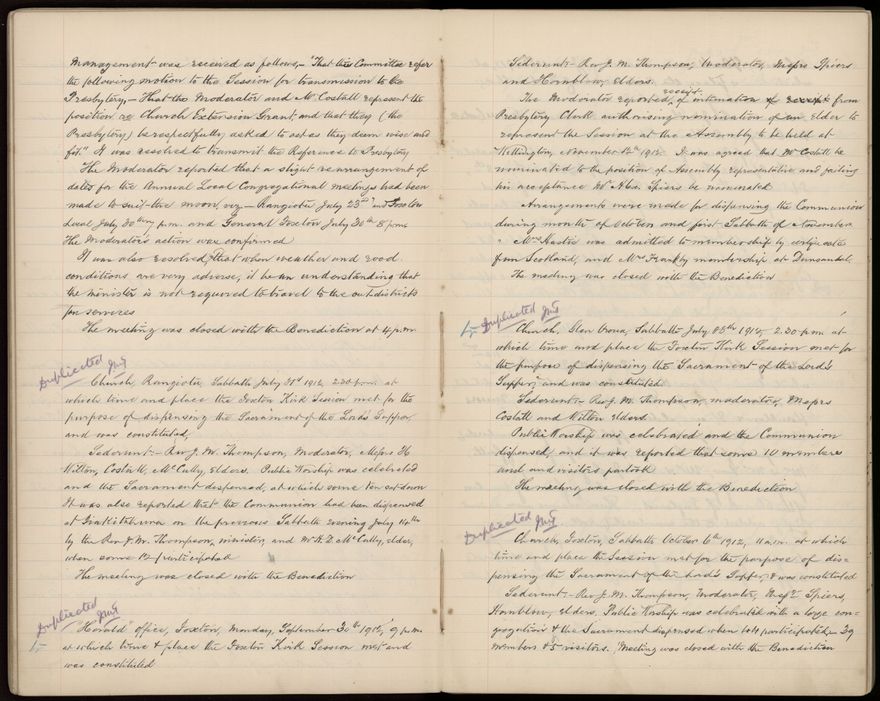 Management was received as follows, – "That this Committee refer
the following motion to the Session for transmission to the
Presbytery, – That the Moderator and Mr Costall represent the
position re Church Extension Grant, and that they (the
Presbytery) be respectfully asked to act as they deem wise and
fit." It was resolved to transmit the Reference to Presbytery
The Moderator reported that a slight re-arrangement of
dates for the Annual Local Congregational meetings had been
made to suit the moon, viz – Rangiotu July 23rd and Foxton
Local July 30th p.m. and General Foxton July 30th 8 p.m.
The Moderator's action was confirmed
It was also resolved, that when weather and road
conditions are very adverse, it be an understanding that
the minister is not required to travel to the out districts
for services
The meeting was closed with the Benediction at 4 p.m
Duplicated
Church, Rangiotu, Sabbath July 21st 1912, 2.30 p.m. at
which time and place the Foxton Kirk Session met for the
purpose of dispensing the Sacrament of the Lord's Supper,
and was constituted,
Sederunt: – Rev J. M. Thompson, Moderator, Messrs H
Wilton, Costall, McCully, elders. Public Worship was celebrated
and the Sacrament dispensed, at which some ten sat down
It was also reported that the Communion had been dispensed
at on the previous Sabbath evening July 14th
by the Rev J. M. Thompson, minister, and Mr McCully, elder,
when some 12 participated
The meeting was closed with the Benediction
Duplicated
"Herald" Office, Foxton, Monday, September 30th 1912, 9 p.m.
at which time & place the Foxton Kirk Session met and
was constituted
Sederunt: – Rev J. M. Thompson, Moderator, Messrs Spiers
and Hornblow, elders.
receipt
The Moderator reported, of intimation of receipt from
Presbytery Clerk authorising nomination of an elder to
represent the Session at the Assembly to be held at
Wellington, November 12th 1912. It was agreed that Mr Costall be
nominated to the position of Assembly representative and failing
his acceptance Mr Alex. Spiers be nominated
Arrangements were made for dispensing the Communion
during month of October and first Sabbath of November
Mrs Hastie was admitted to membership by certificate
from Scotland, and Mrs membership at Dunsandel.
The meeting was closed with the Benediction
Duplicated
Church, Glen Oroua, Sabbath July 28th 1912, 2.30 p.m. at
which time and place the Foxton Kirk Session met for
the purpose of dispensing the Sacrament of the Lord's
Supper, and was constituted
Sederunt – Rev J. M. Thompson, moderator, Messrs
Costall and Wilton, elders
Public Worship was celebrated and the Communion
dispensed, and it was reported that some 10 members
and visitors partook
The meeting was closed with the Benediction
Duplicated
Church, Foxton, Sabbath October 6th 1912, 11 a.m. at which
time and place the Session met for the purpose of dis-
pensing the Sacrament of the Lord's Supper, & was constituted
Sederunt – Rev J. M. Thompson, Moderator, Messrs Spiers,
Hornblow, elders. Public Worship was celebrated with a large con-
gregation & the Sacrament dispensed when 44 participated, – 39
members & 5 visitors. Meeting was closed with the Benediction